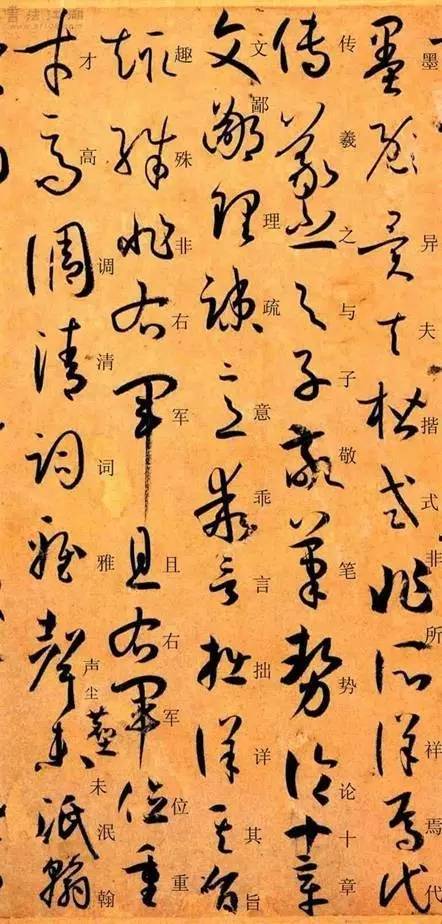 墨异夫揩式非所祥焉代
传羲之与子敬笔势论十章
文鄙理疏意乖言拙详其旨
趣殊非右军且右军位重
才高调清词雅声尘未泯翰
书法江湖